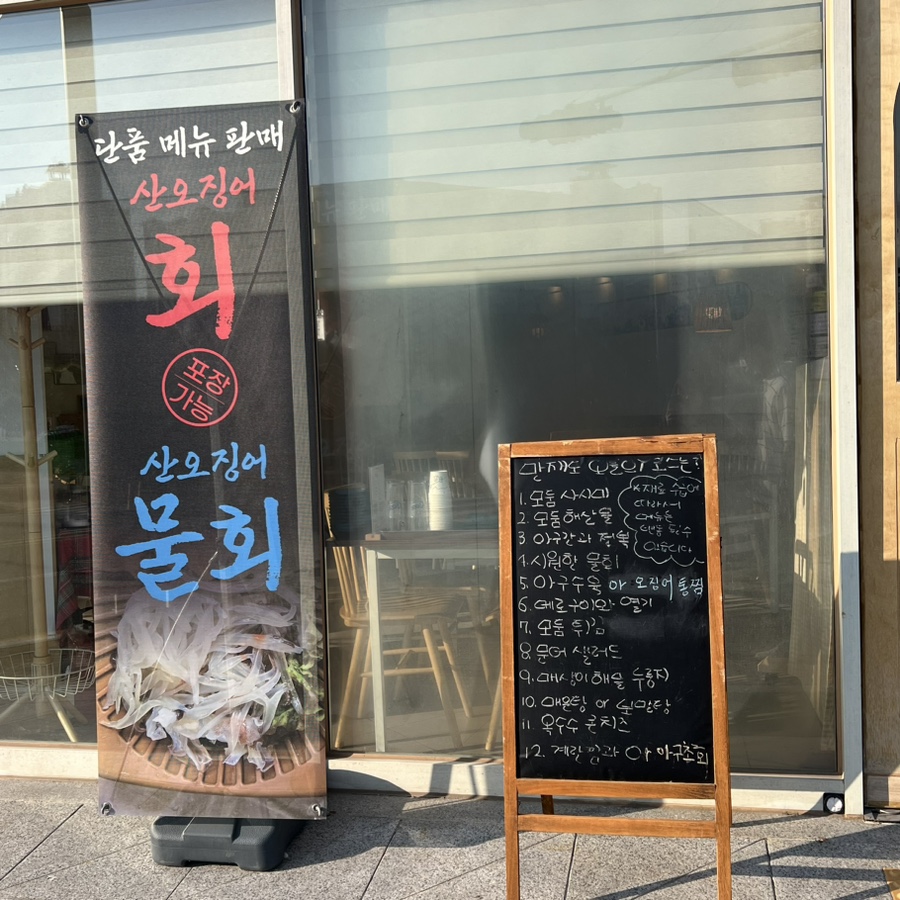 단품 메뉴 판매
산오징어
회
포장
가능
산오징어
물회
만재도 코스는?
재료 수급에
따라서
메뉴는
변동 될수
있습니다
1. 모둠 사시미
2. 모둠해산물
3 아구간과 전복
4. 시원한 물회
5. 아구수육 or 오징어통찜
6. 메로구이와 열기
7. 모둠 튀김
8. 문어 샐러드
9. 매생이해물 누룽지
10. 매운탕 or 맑은탕
11. 옥수수 콘치즈
12. 계란 or 아구초회